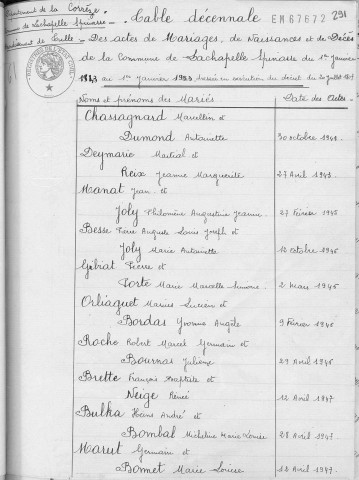 Département de la Corrèze
de Lachapelle Spinasse
Table décennale
EM67672 291
de Tulle
Des actes de Mariages, de Naissances et de Décès
de la Commune de Lachapelle Spinasse du 1er Janvier
au 1er Janvier 1953 dressée en exécution du décret du 20 juillet
Noms et prénoms des Mariés Date des Actes
Chassagnard Marcellin et
Dumond Antoinette 30 octobre 1943
Deymarie Martial et
Reix Jeanne Marguerite 27 Avril 1943
Manat Jean et
Joly Philomène Augustine Jeanne 27 Février 1945
Besse Pierre Auguste Louis Joseph et
Joly Marie Antoinette octobre 1945
Gibiat Pierre et
Torte Marie Marcelle Simone 2 Mars 1946
Orliaguet Marius Lucien et
Bordas Yvonne Angèle 9 Février 1946
Roche Robert Marcel Germain et
Bournas Julienne 29 Avril 1946
Brette François Baptiste et
Neige Renée 12 Avril 1947
Bulka Hans André et
Bombal Micheline Marie Louise 28 Avril 1947
Marut Germain et
Bomet Marie Louise Avril 1947